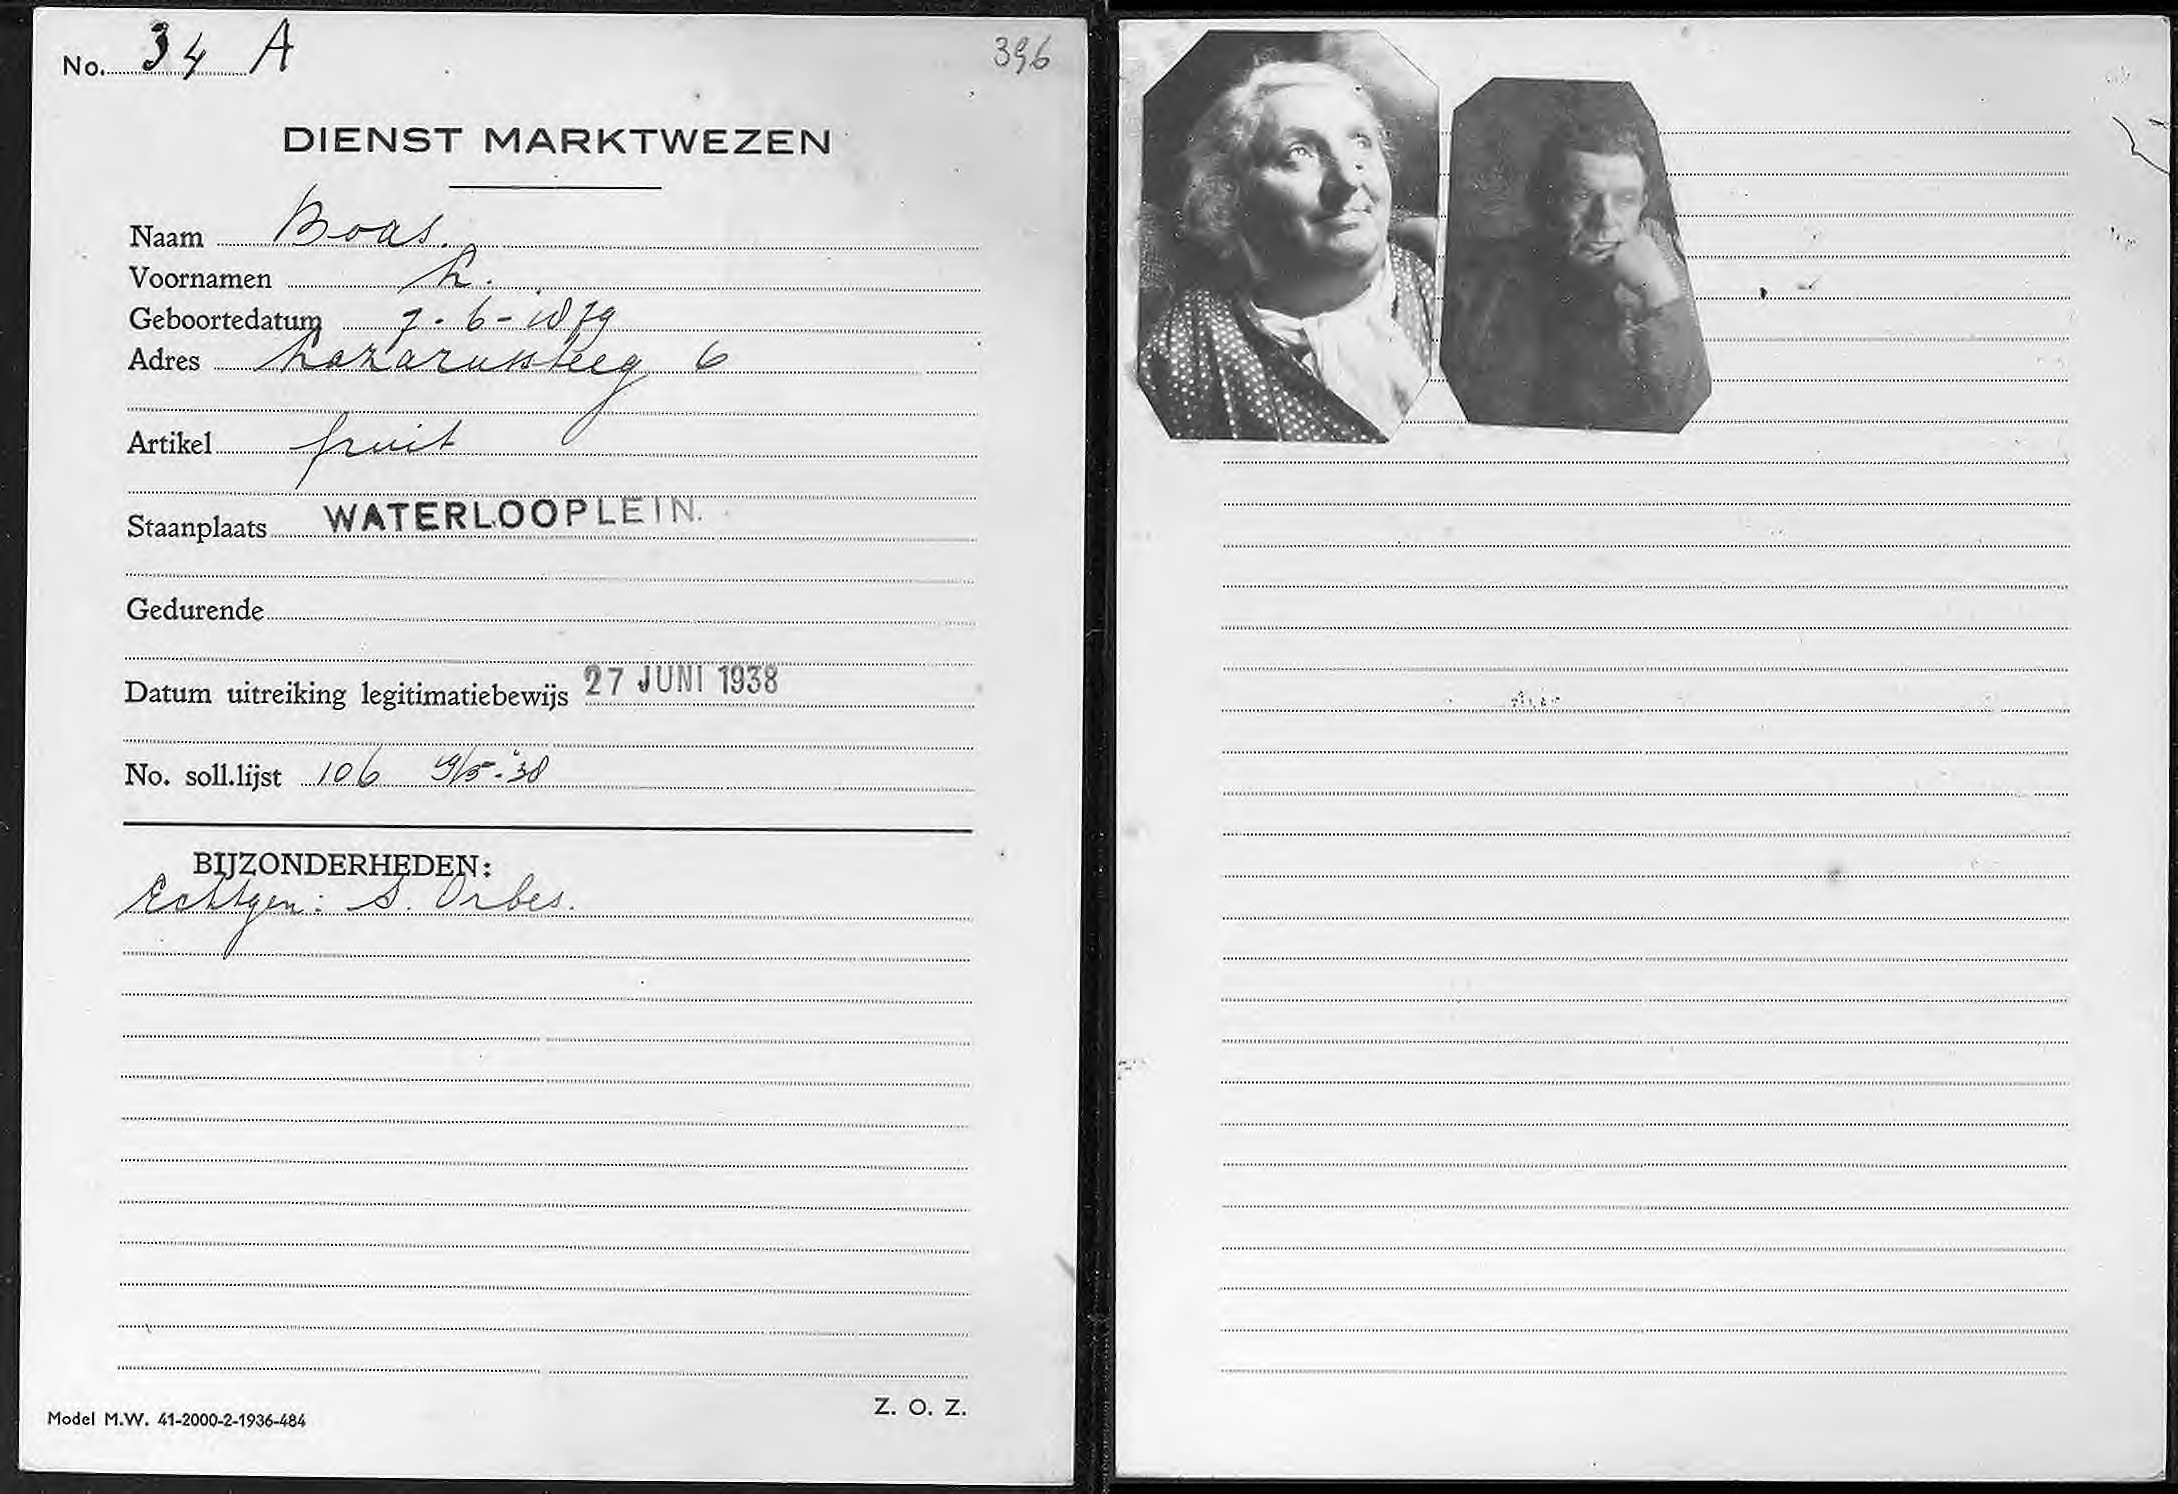 No. 34 A
396
DIENST MARKTWEZEN
Naam Boas.
Voornamen L.
Geboortedatum 7-6-1879
Adres Lazarussteeg 6
Artikel fruit
Staanplaats WATERLOOPLEIN.
Gedurende
Datum uitreiking legitimatiebewijs 27 JUNI 1938
No. soll.lijst 106 9/5-'38
BIJZONDERHEDEN:
Echtgen: S. Orbes.
Model M.W. 41-2000-2-1936-484
Z. O. Z.